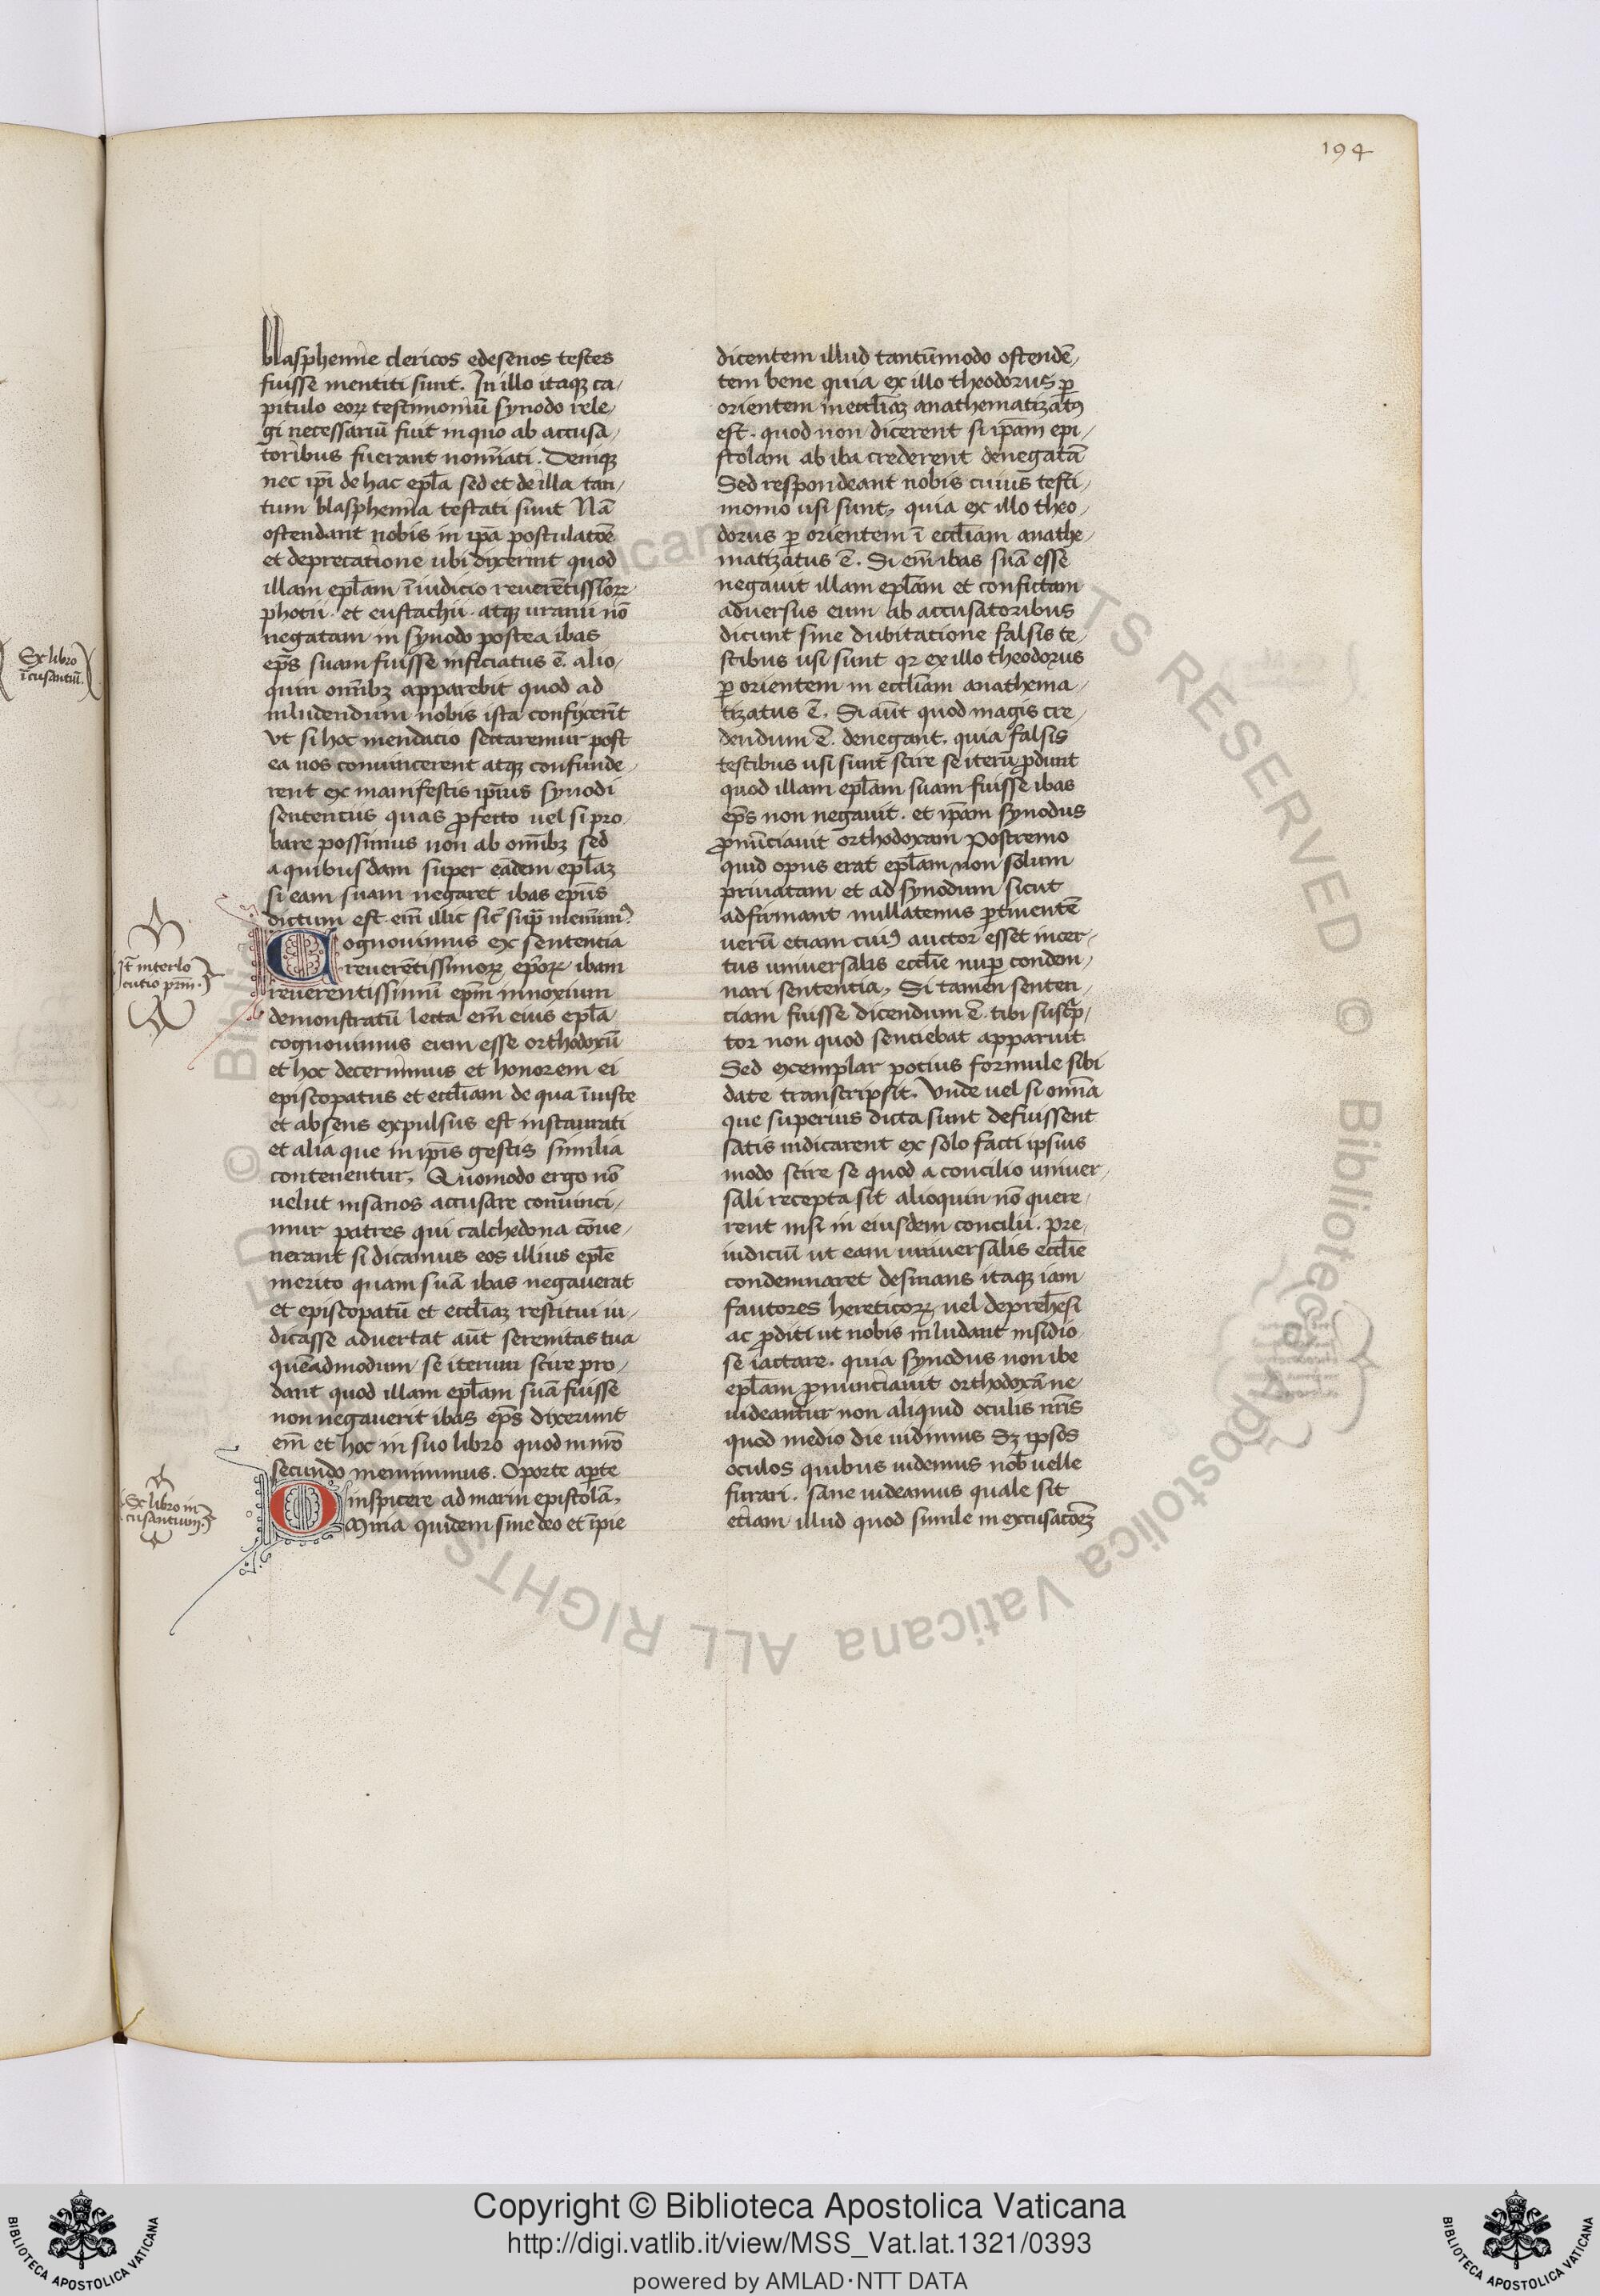 194
blasphemie clericos edesenos testes
fuisse mentiti sunt. In illo itaqꝫ ca/
pitulo eoꝝ testimoniū synodo rele/
gi necessariū fuit in quo ab accusa/
toribus fuerant nomīati. Deniqꝫ
nec ip̄i de hac ep̄la sed et de illa tan/
tum blasphemia testati sunt Nā
ostendant nobis in ip̄a postulatōe
et deprecatione ubi dixerint quod
illam ep̄lam ī iudicio reuerētissīoꝝ
photii. et eustachii. atqꝫ uranii nō
negatam in synodo postea ibas
ep̄s suam fuisse inficiatus ē. alio/
quin om̄ibꝫ apparebit quod ad
inludendum nobis ista confixerīt
Vt si hoc mendacio sectaremur post
ea nos conuincerent atqꝫ confunde/
rent ex manifestis ip̄ius synodi
sententiis quas ꝓfecto uel si pro/
bare possimus non ab om̄ibꝫ sed
a quibusdam super eadem ep̄laꝫ
si eam suam negaret ibas ep̄us
dictum est em̄ illic sic̄ sup̄ meminimꝰ
It̄ interlo
cutio prīm.
Cognouimus ex sententia
reuerētissimoꝝ ep̄oꝝ ibam
reuerentissimū ep̄m innoxium
demonstratū lecta em̄ eius ep̄la
cognouimus eum esse orthodoxū
et hoc decernimus et honorem ei
episcopatus et eccl̄iam de qua īiuste
et absens expulsus est instaurati
et alia que in ip̄is gestis similia
contenentur, Quomodo ergo nō
uelut insanos accusare conuinci/
mur patres qui calchedona cōue/
nerant si dicamus eos illius ep̄le
merito quam suā ibas negauerat
et episcopatū et eccl̄iaꝫ restitui iu/
dicasse aduertat aūt serenitas tua
quēadmodum se iterum scire pro/
dant quod illam ep̄lam suā fuisse
non negauerit ibas ep̄s dixerunt
em̄ et hoc in suo libro quod in nr̄o
secundo meminimus. Oporte aꝑte
Ex libro in
cusantium.
inspicere ad marin epistolā,
Omnia quidem sine deo et īpie
dicentem illud tantūmodo ostendē/
tem bene quia ex illo theodorus ꝑ
orientem in eccl̄iaꝫ anathematizatꝰ
est. quod non dicerent si ip̄am epi/
stolam ab iba crederent denegatā
Sed respondeant nobis cuius testi/
monio usi sunt, quia ex illo theo/
dorus ꝑ orientem ī eccl̄iam anathe/
matizatus ē. Si em̄ ibas suā esse
negauit illam ep̄lam et confictam
aduersus eum ab accusatoribus
dicunt sine dubitatione falsis te/
stibus usi sunt qꝛ ex illo theodorus
ꝑ orientem in eccl̄iam anathema/
tizatus ē. Si aūt quod magis cre/
dendum ē. denegant. quia falsis
testibus usi sunt scire se iterū ꝓdunt
quod illam ep̄lam suam fuisse ibas
ep̄s non negauit. et ip̄am synodus
ꝓnūciauit orthodoxam Postremo
quid opus erat ep̄lam non solum
priuatam et ad synodum sicut
adfirmant nullatenus ꝑtinentē
uerū etiam cuiꝰ auctor esset incer/
tus uniuersalis eccl̄ie nuꝑ condem/
nari sententia, Si tamen senten/
ciam fuisse dicendum ē. tibi suscp̄/
tor non quod senciebat apparuit.
Sed exemplar pocius formule sibi
date transcripsit. Vnde uel si om̄ia
que superius dicta sunt defuissent
satis indicarent ex solo facti ipsius
modo scire se quod a concilio uniuer/
sali recepta sit alioquin nō quere/
rent nisi in eiusdem concilii. pre/
iudiciū ut eam uniuersalis eccl̄ie
condemnaret desinans itaqꝫ iam
fautores hereticoꝝ uel deprehēsi
ac ꝓditi ut nobis inludant insidio/
se iactare. quia synodus non ibe
ep̄lam ꝓnunciauit orthodoxā ne
uideantur non aliquid oculis nr̄is
quod medio die uidimus Sꝫ ipsos
oculos quibus uidemus nob̄ uelle
furari. sane uideamus quale sit
etiam illud quod simile in excusatōeꝫ
Ex libro
īcusantiū.
Copyright © Biblioteca Apostolica Vaticana
http://digi.vatlib.it/view/MSS_Vat.lat.1321/0393
powered by AMLAD·NTT DATA
BIBLIOTECA APOSTOLICA VATICANA
BIBLIOTECA APOSTOLICA VATICANA